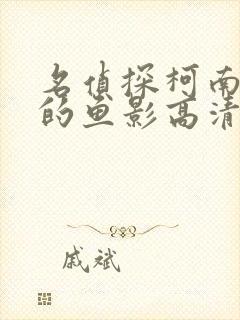 名侦探柯南
的鱼影高清
戚斌